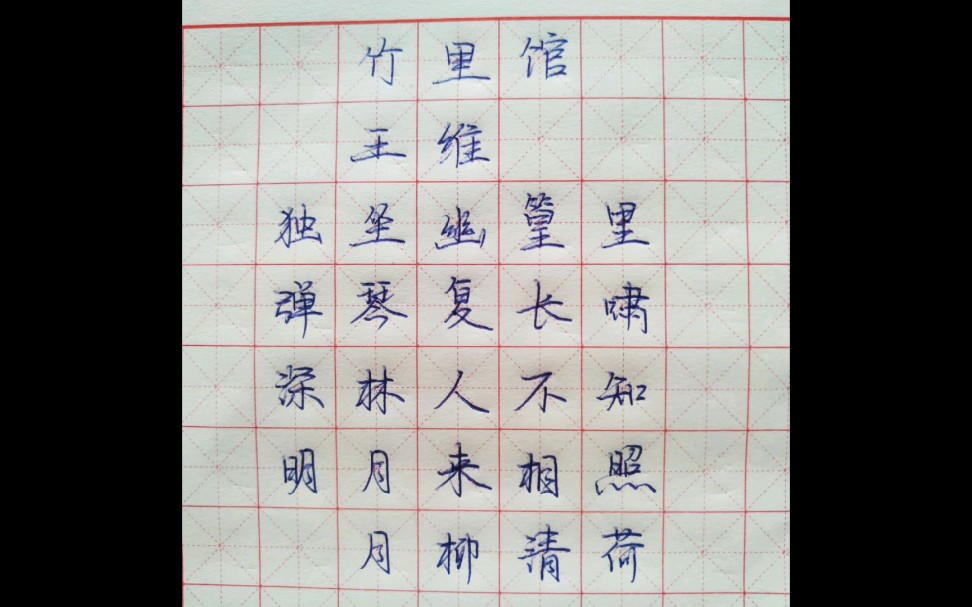 竹里馆
王维
独坐幽篁里
弹琴复长啸
深林人不知
明月来相照
月柳清荷